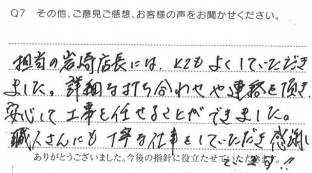 Q7 その他、ご意見ご感想、お客様の声をお聞かせください。
担当の岩崎店長には、とてもよくしていただき
ました。詳細な打ち合わせや連絡を頂き、
安心して工事を任せることができました。
職人さんにも丁寧な仕事をしていただき感謝し
ありがとうございました。今後の指針に役立たせていただきます。
ています!!